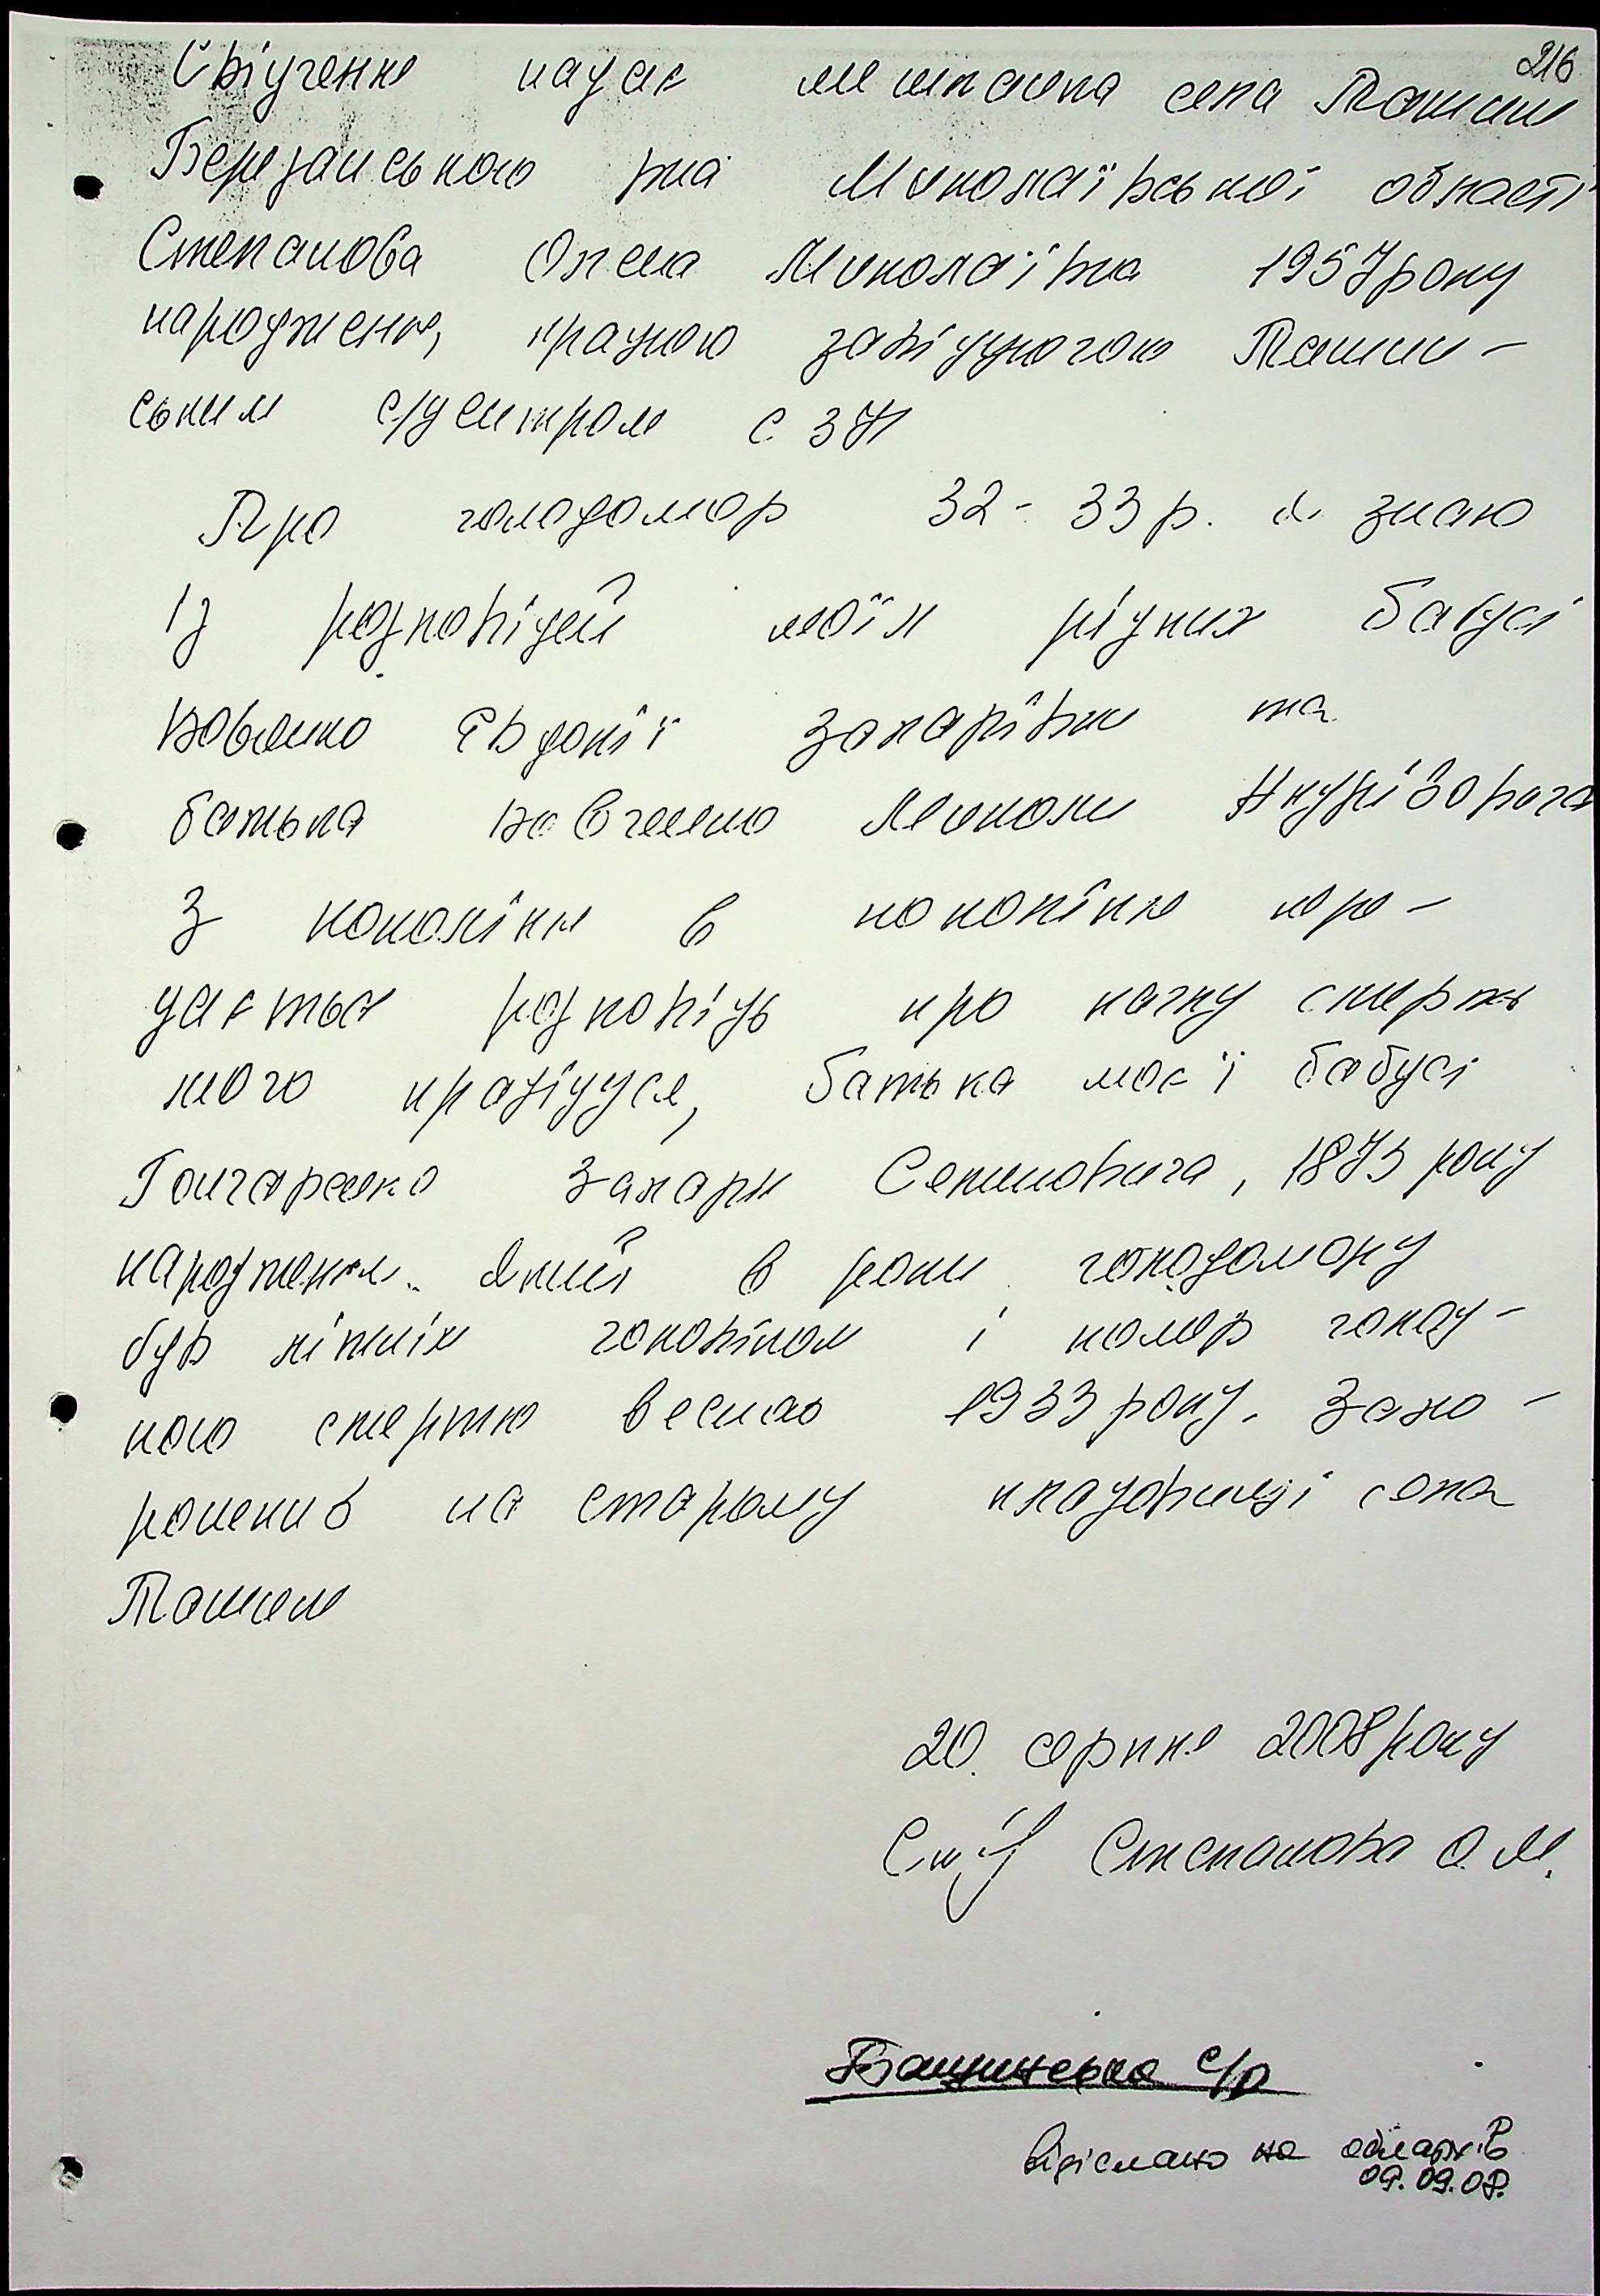 216
Свідчення надає мешканка села Ташин
Березанського р-на Миколаївської області
Степанова Олена Миколаївна 1957 року
народження, працюю завідуючою Ташин-
ським с/центром СЗН
Про голодомор 32-33 р. я знаю
із розповідей моїх рідних бабусі
Вовченко Євдокії Захарівни та
батька Вовченко Миколи
З покоління в покоління пере-
дається розповідь про тяжку смерть
мого прадідуся, батька моєї бабусі
Гончаренко Захари Семеновича, 1873 року
народження. Який в роки голодомору
був літнім чоловіком і помер голод-
ною смертю весною 1933 року. Захо-
ронений на старому кладовищі села
Ташин
20. серпня 2008 року
Степанова О.М.
с/р
Відіслано на облархів
09.09.08.